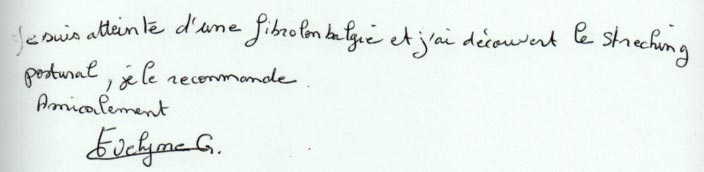 Je suis atteinte d'une fibrolombalgie et j'ai découvert le streching
postural, je le recommande.
Amicalement
Evelyne G.